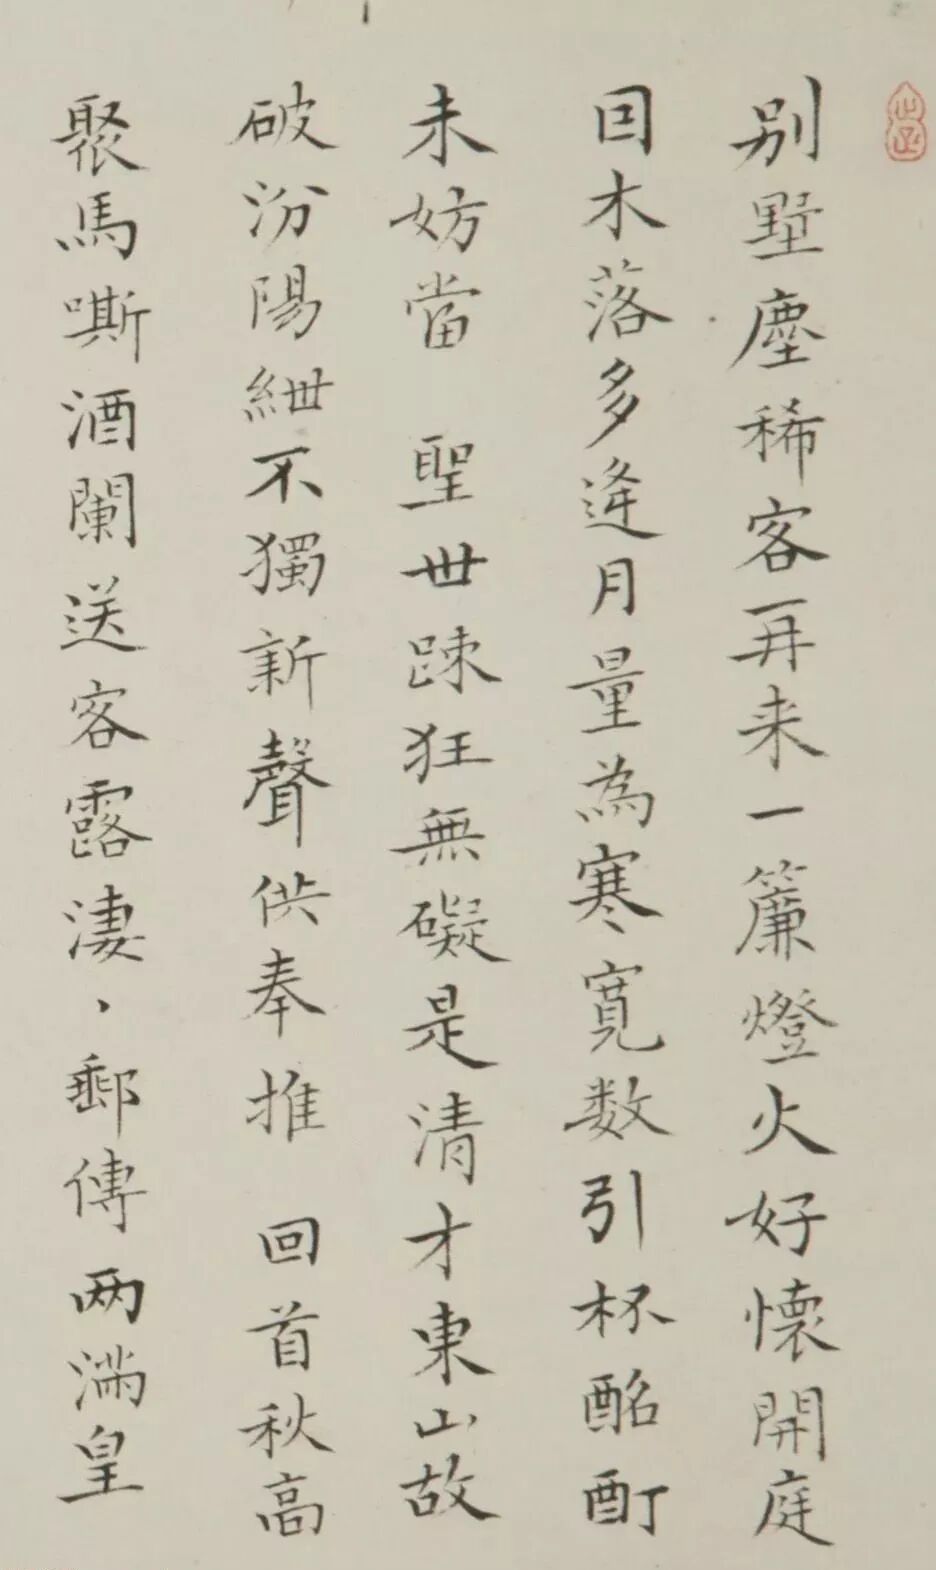 別墅塵稀客再来一簾燈火好懷開庭
因木落多逢月量為寒寬数引杯酩酊
未妨當聖世踈狂無礙是清才東山故
破汾陽紲不獨新聲供奉推回首秋高
聚馬嘶酒闌送客露淒、郵傳两湍皇